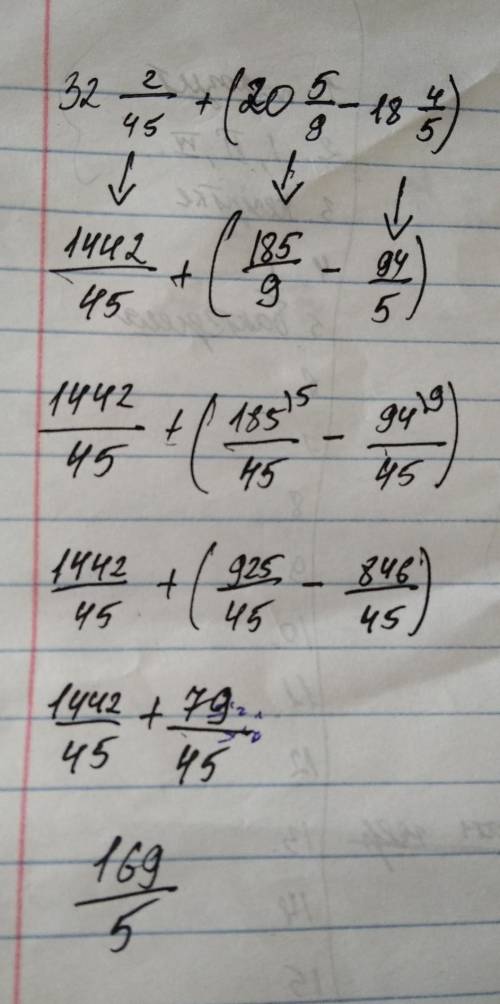 32 2/45 + (20 5/9 - 18 4/5)
1442/45 + (185/9 - 94/5)
1442/45 + (185⁾⁵/45 - 94⁾⁹/45)
1442/45 + (925/45 - 846/45)
1442/45 + 79/45
169/5